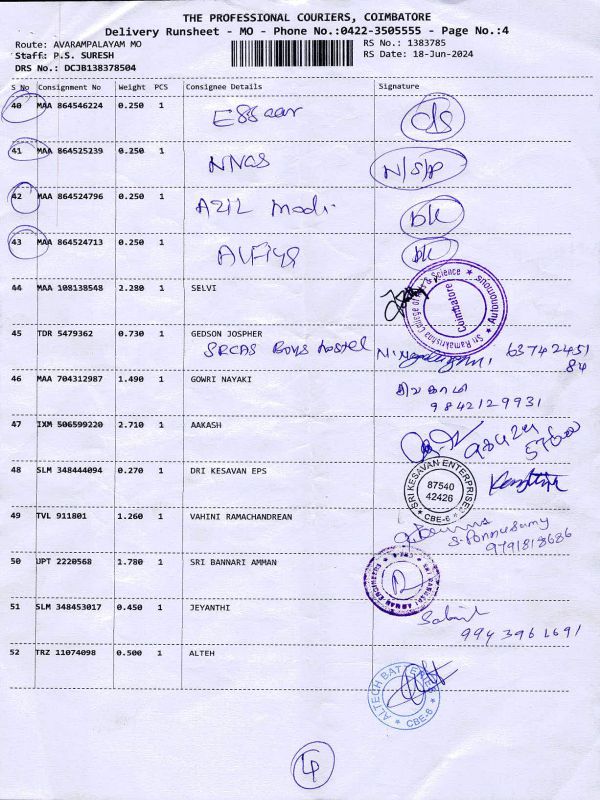 THE PROFESSIONAL COURIERS, COIMBATORE
Delivery Runsheet - MO - Phone No.:0422-3505555 - Page No.:4
Route: AVARAMPALAYAM MO RS No.: 1383785
Staff: P.S. SURESH RS Date: 18-Jun-2024
DRS No.: DCJB138378504
S No Consignment No Weight PCS Consignee Details Signature
40 MAA 864546224 0.250 1 Essaar
41 MAA 864525239 0.250 1 NNCS N/S/P
42 MAA 864524796 0.250 1 AZIL Modi
43 MAA 864524713 0.250 1 Alfiya
44 MAA 108138548 2.280 1 SELVI
Sri Ramakrishna College of Arts & Science * Autonomous * Coimbatore
45 TDR 5479362 0.730 1 GEDSON JOSPHER
SRCAS Boys hostel 63742451
84
46 MAA 704312987 1.490 1 GOWRI NAYAKI சிவகாமி
9842129931
47 IXM 506599220 2.710 1 AAKASH
48 SLM 348444094 0.270 1 DRI KESAVAN EPS
SRI KESAVAN ENTERPRISES * CBE-6 * 87540 42426
49 TVL 911801 1.260 1 VAHINI RAMACHANDREAN
S. Ponnusamy
9791818686
50 UPT 2220568 1.780 1 SRI BANNARI AMMAN
51 SLM 348453017 0.450 1 JEYANTHI
9943961691
52 TRZ 11074098 0.500 1 ALTEH
ALTECH BATTERIES * CBE-6 *
4